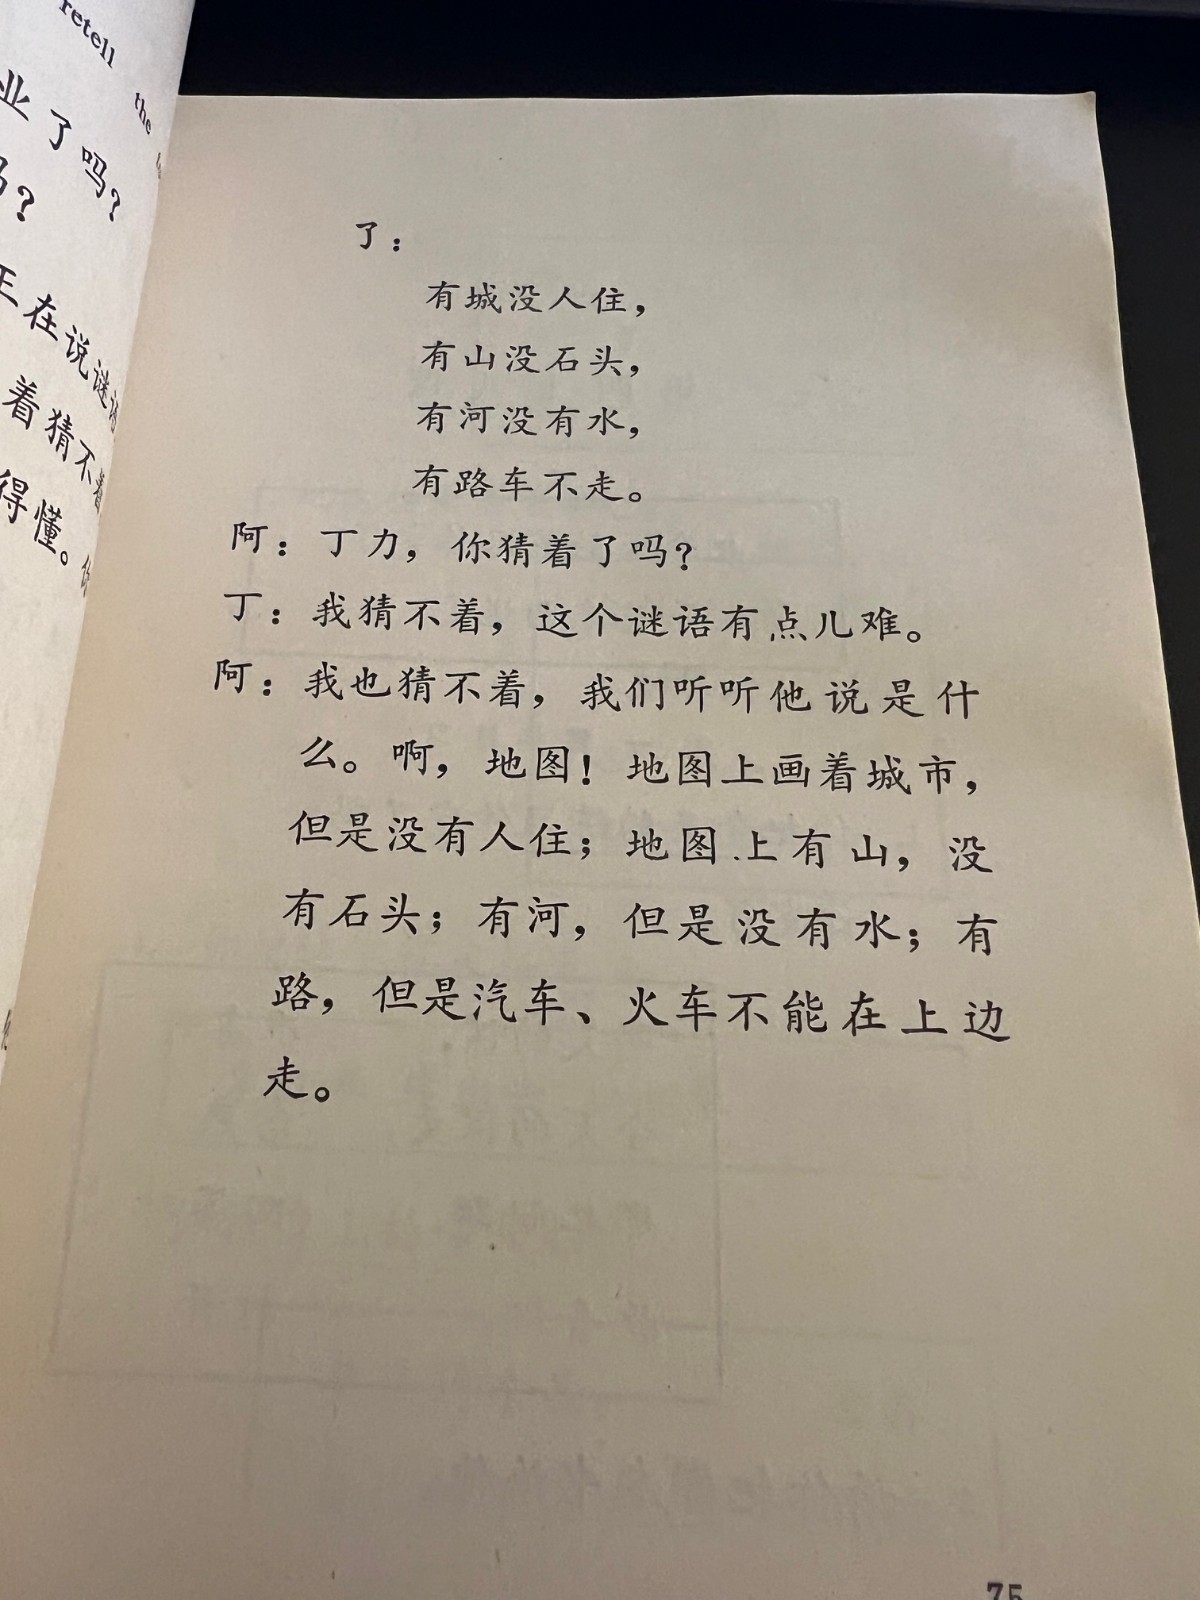 retell the
业了吗?
吗?
正在说谜
着猜不着
得懂。
了：
有城没人住，
有山没石头，
有河没有水，
有路车不走。
阿：丁力，你猜着了吗?
丁：我猜不着，这个谜语有点儿难。
阿：我也猜不着，我们听听他说是什
么。啊，地图！地图上画着城市，
但是没有人住；地图上有山，没
有石头；有河，但是没有水；有
路，但是汽车、火车不能在上边
走。
75